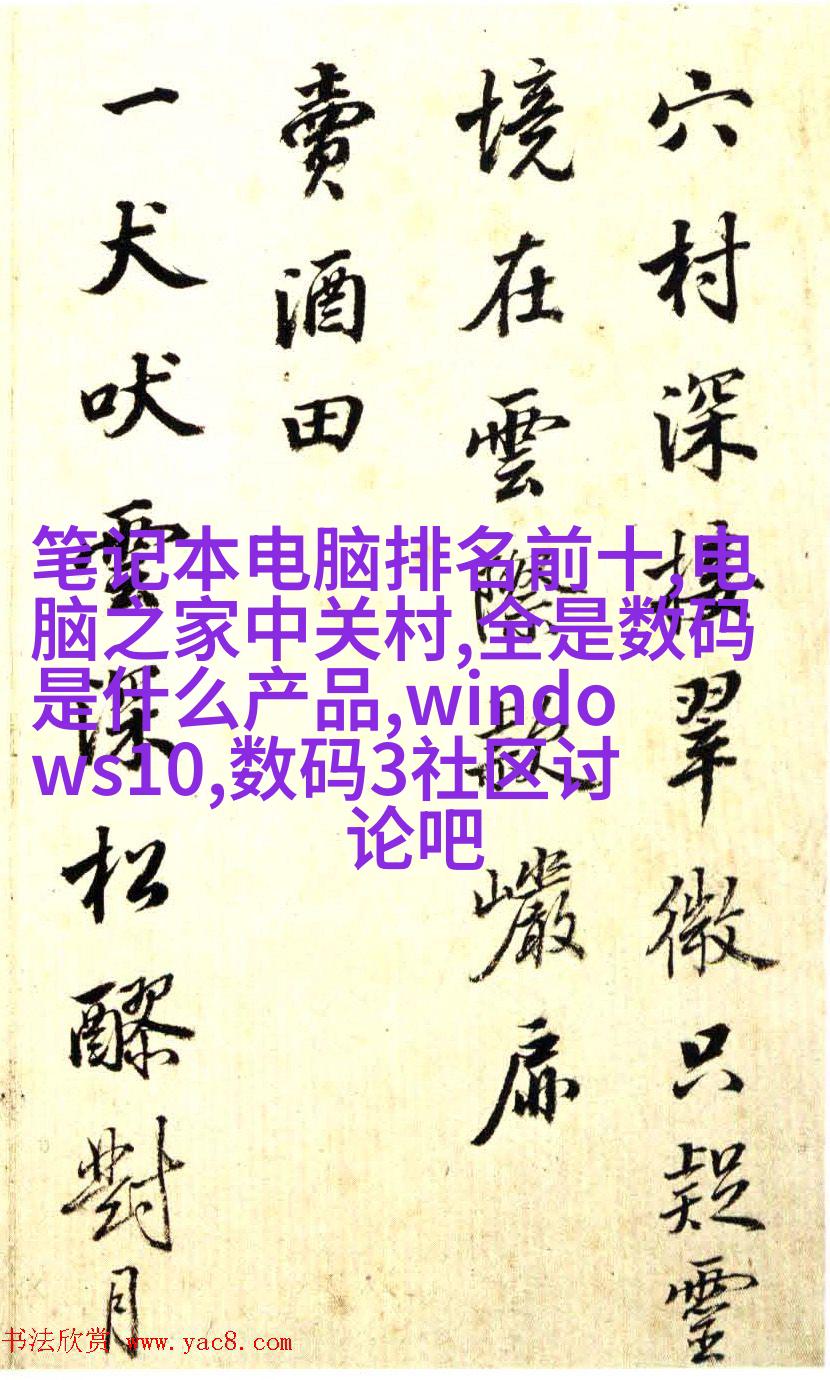 穴村深接翠微只疑靈
境在雲際敲巖扉
賣酒田
一犬吠雲深松醪對月
笔记本电脑排名前十,电
脑之家中关村,全是数码
是什么产品,windo
ws10,数码3社区讨
论吧
书法欣赏 www.yac8.com